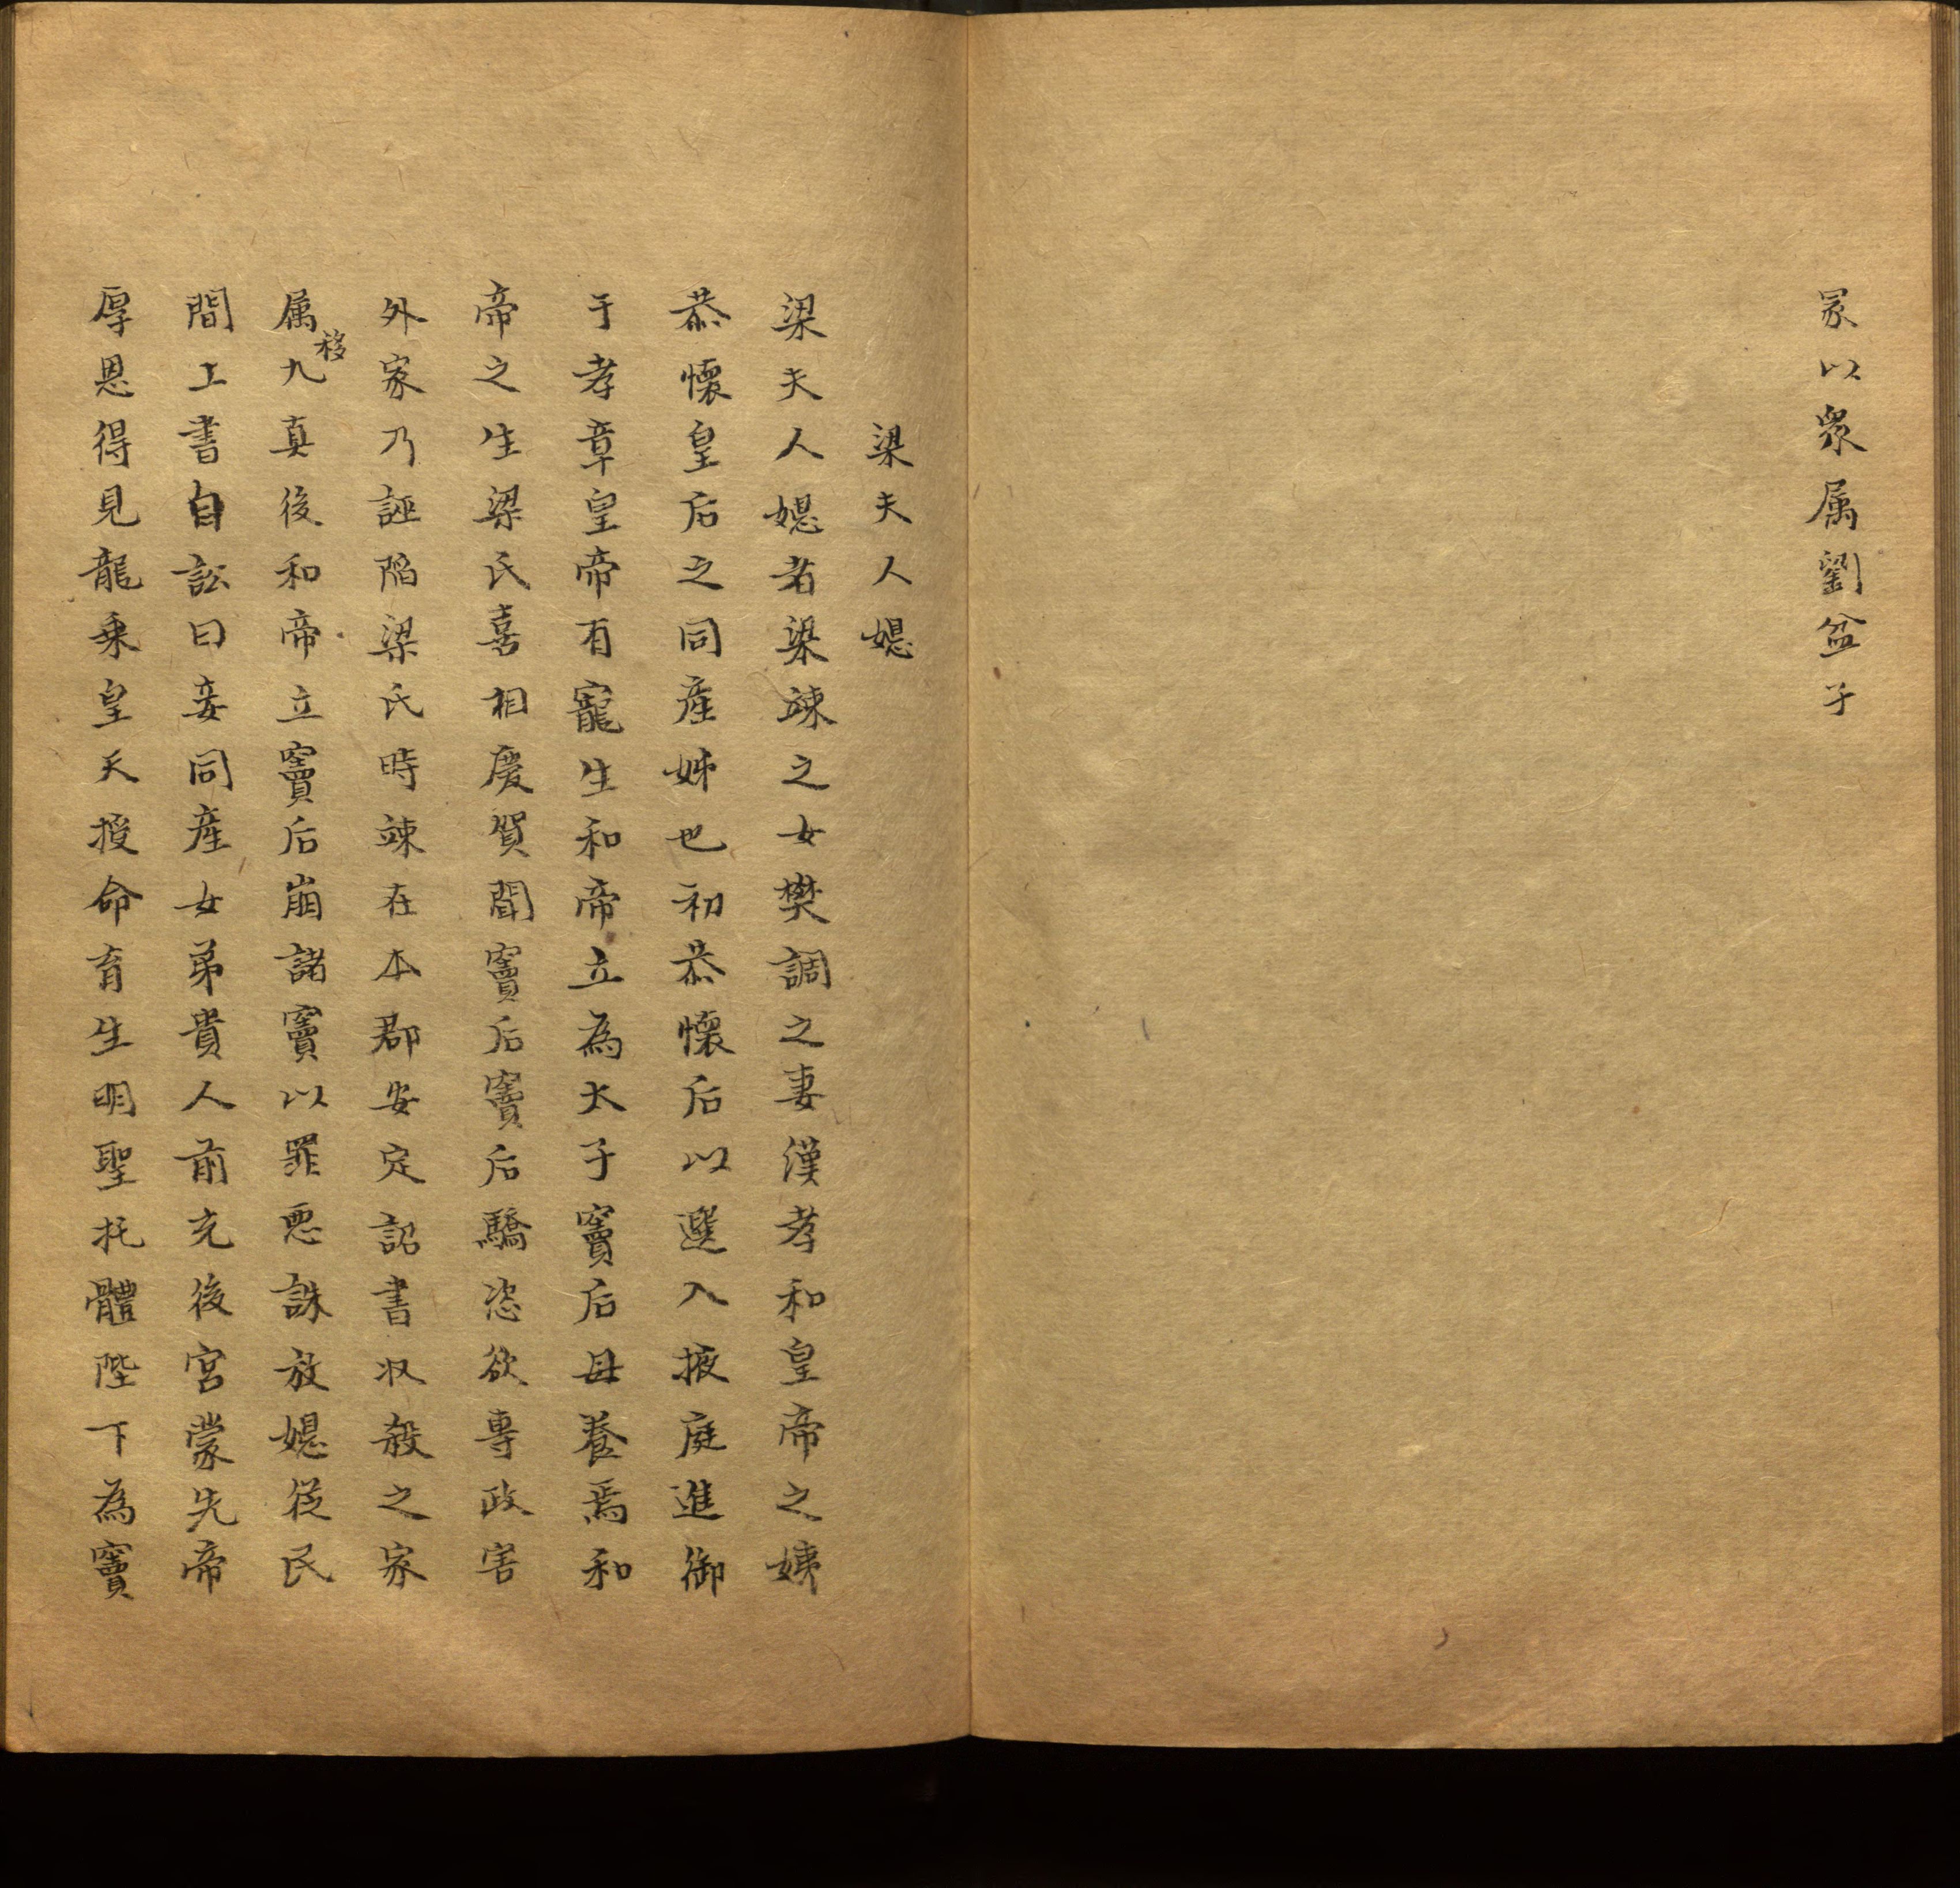 冡以眾属劉盆子
梁夫人嫕
梁夫人嫕者梁竦之女樊調之妻漢孝和皇帝之姨
恭懷皇后之同產姊也初恭懷后以選入掖庭進御
于孝章皇帝有寵生和帝立為太子竇后母養焉和
帝之生梁氏喜相慶賀聞竇后竇后驕恣欲專政害
外家乃誣陷梁氏時竦在本郡安定詔書収殺之家
属移九真後和帝立竇后崩諸竇以罪惡誅放嫕從民
間上書自訟曰妾同產女弟貴人前充後宮蒙先帝
厚恩得見龍乗皇天授命育生明聖托體陛下為竇